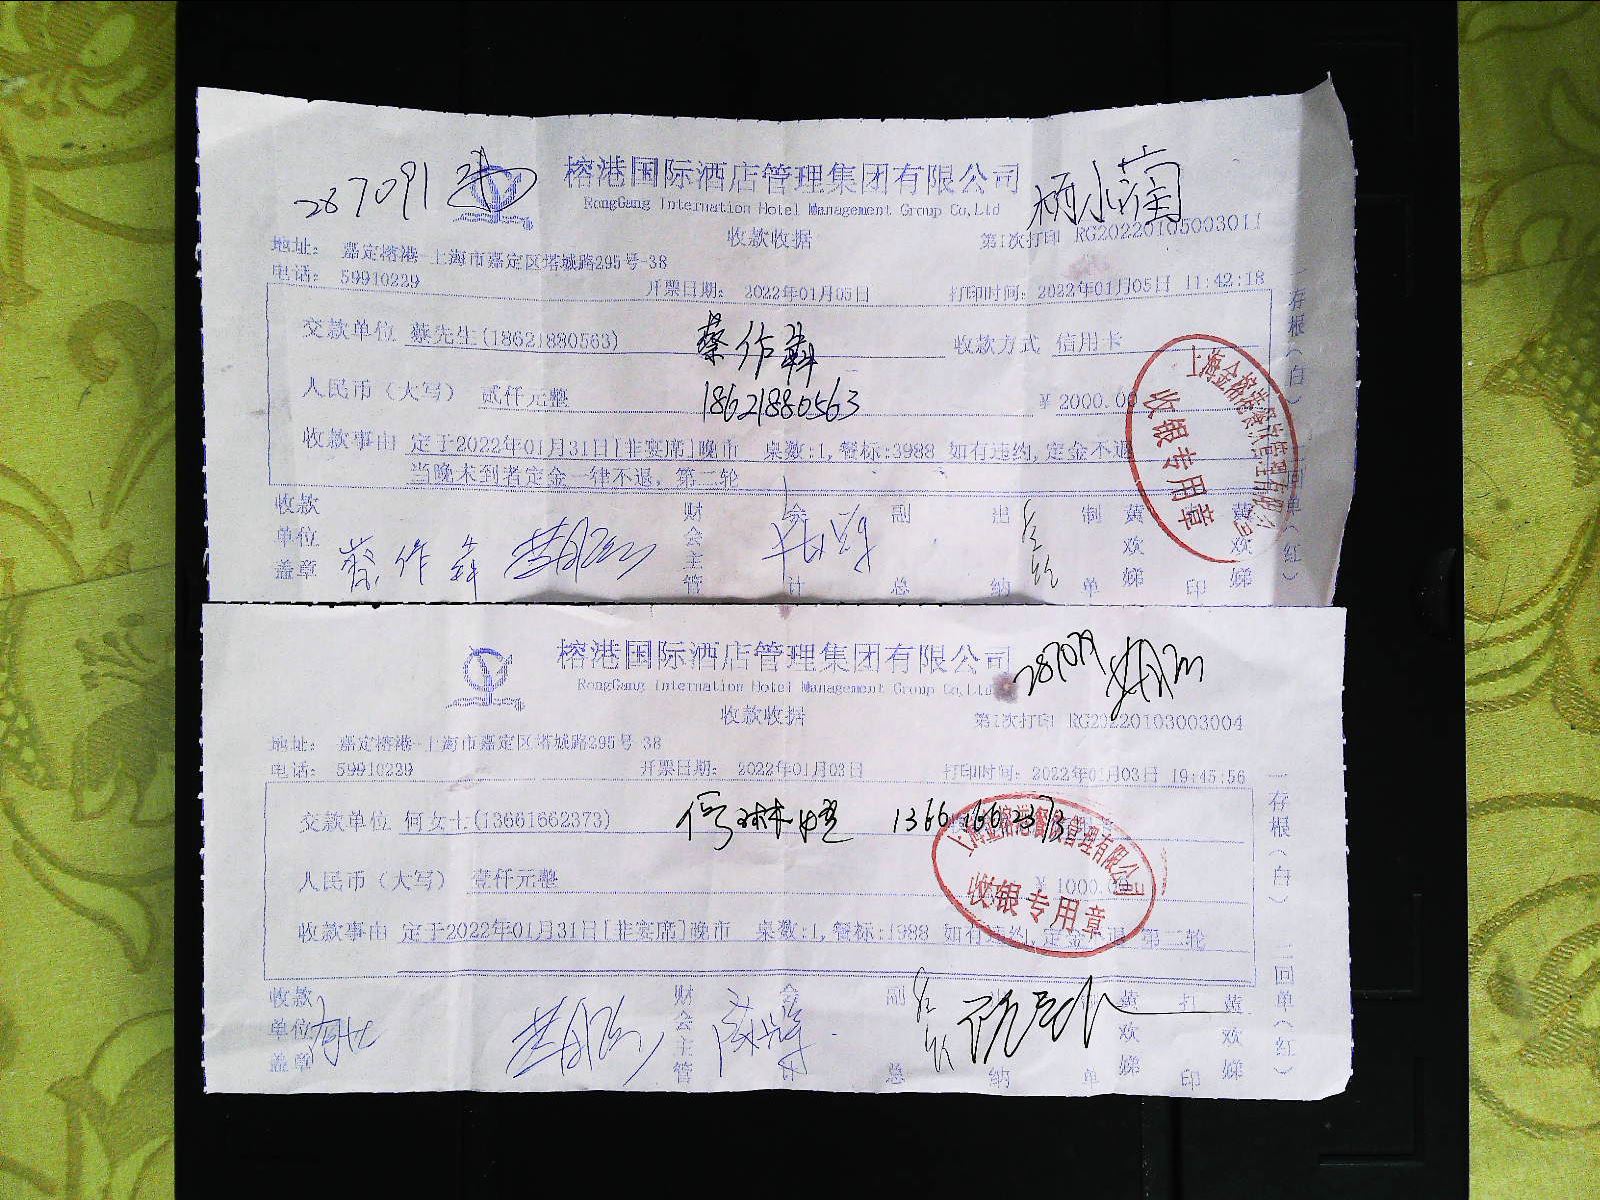 287091
榕港国际酒店管理集团有限公司
RongGang Internation Hotel Management Group Co,Ltd
收款收据
第1次打印 RG20220105003011
地址： 嘉定榕港-上海市嘉定区塔城路295号-38
电话： 59910229
开票日期： 2022年01月05日 打印时间：2022年01月05日 11:42:18
交款单位 蔡先生(18621880563) 蔡作 收款方式 信用卡
人民币（大写） 贰仟元整 18621880563 ¥ 2000.00
收款事由 定于2022年01月31日[非宴席]晚市 桌数:1,餐标:3988 如有违约,定金不退
当晚未到者定金一律不退，第二轮
收款单位盖章 蔡作 财会主管 会计 副总 出纳 制单 黄欢娣 打印 黄欢娣
一存根（白） 二回单（红）
收银专用章
榕港国际酒店管理集团有限公司
287079
RongGang Internation Hotel Management Group Co,Ltd
收款收据
第1次打印 RG20220103003004
地址： 嘉定榕港-上海市嘉定区塔城路295号-38
电话： 59910229
开票日期： 2022年01月03日 打印时间：2022年01月03日 19:45:56
交款单位 何女士(13661662373) 13661662373
人民币（大写） 壹仟元整 ¥ 1000.00
收款事由 定于2022年01月31日[非宴席]晚市 桌数:1,餐标:1988 如有违约,定金不退 第二轮
收款单位盖章 财会主管 会计 副总 出纳 制单 黄欢娣 打印 黄欢娣
一存根（白） 二回单（红）
上海金榕港餐饮管理有限公司
收银专用章